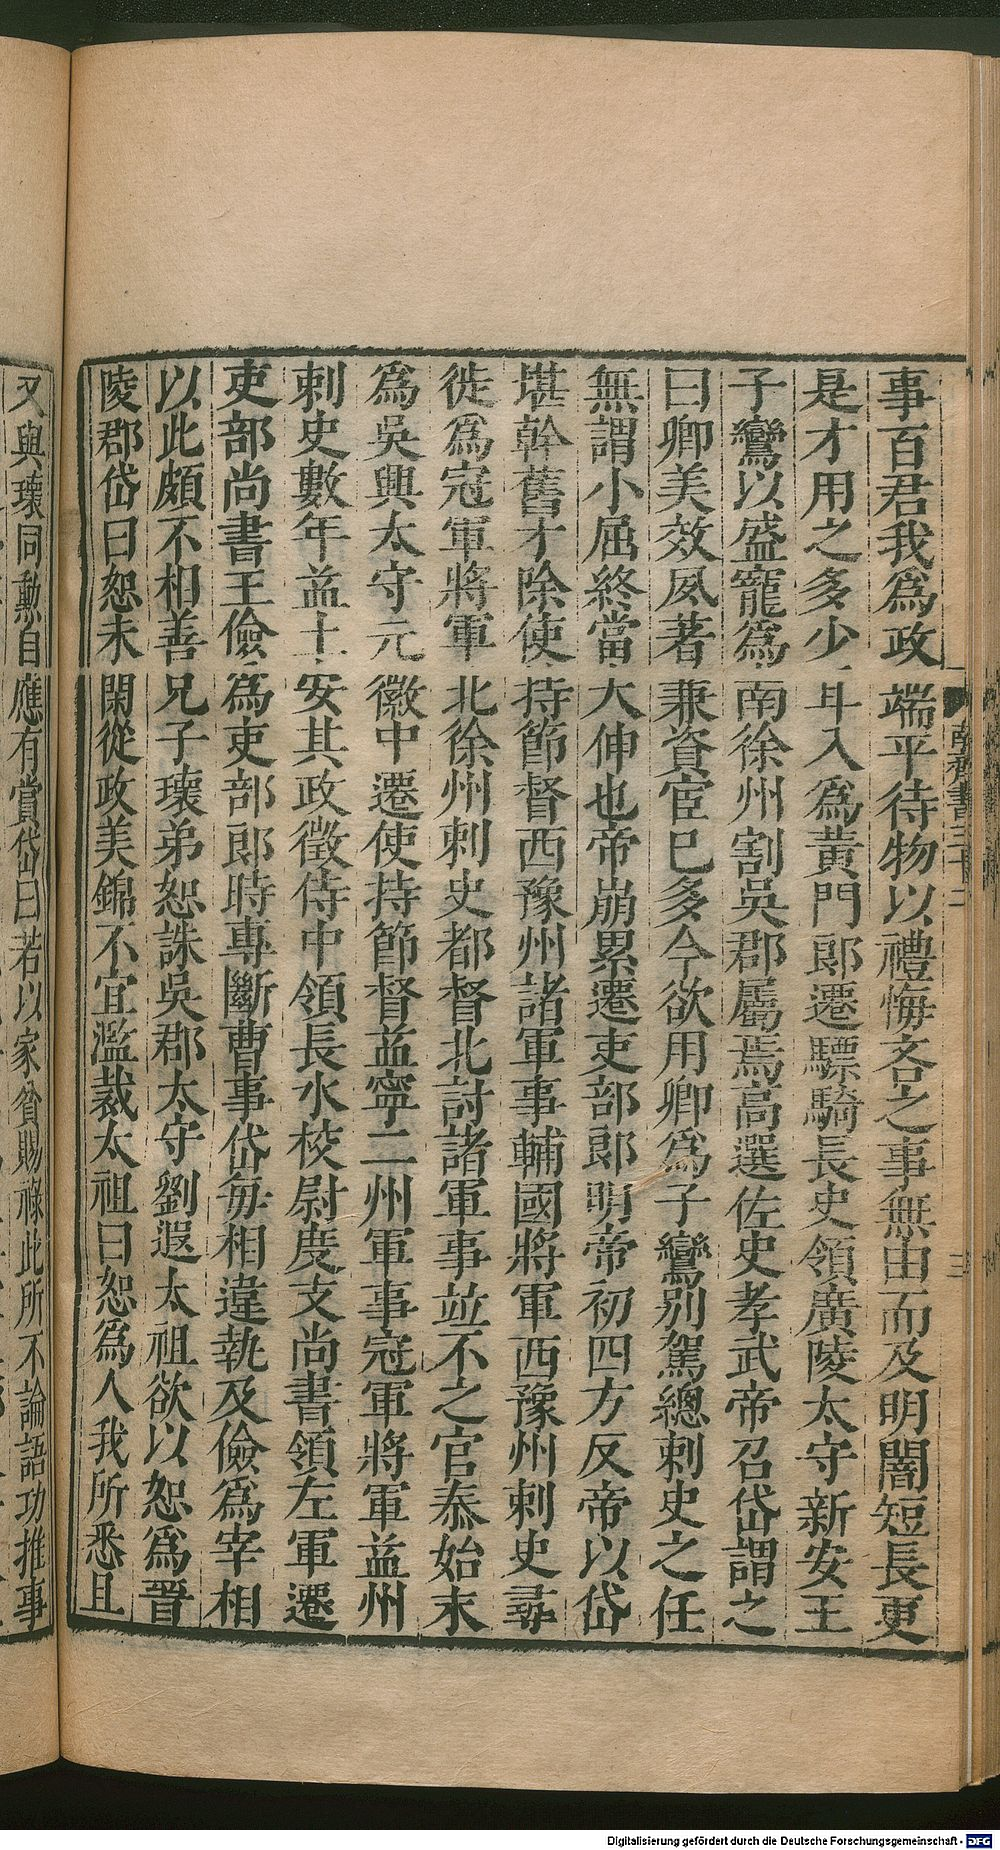 事百君我爲政端平待物以禮悔吝之事無由而及明闇短長更
是才用之多少耳入爲黃門郎遷驃騎長史領廣陵太守新安王
子鸞以盛寵爲南徐州割吳郡屬焉高選佐史孝武帝召岱謂之
曰卿美效夙著兼資宦巳多今欲用卿爲子鸞別駕總刺史之任
無謂小屈終當大伸也帝崩累遷吏部郎明帝初四方反帝以岱
堪幹舊才除使持節督西豫州諸軍事輔國將軍西豫州刺史尋
徙爲冠軍將軍北徐州刺史都督北討諸軍事並不之官泰始末
爲吳興太守元徽中遷使持節督益寧二州軍事冠軍將軍益州
刺史數年益土安其政徵侍中領長水校尉度支尚書領左軍遷
吏部尚書王儉爲吏部郎時專斷曹事岱每相違執及儉爲宰相
以此頗不相善兄子瓌弟恕誅吳郡太守劉遐太祖欲以恕爲晉
陵郡岱曰恕未閑從政美錦不宜濫裁太祖曰恕爲人我所悉且
又與瓌同勳自應有賞岱曰若以家貧賜祿此所不論語功推事
南齊書三十二
三
Digitalisierung gefördert durch die Deutsche Forschungsgemeinschaft - DFG